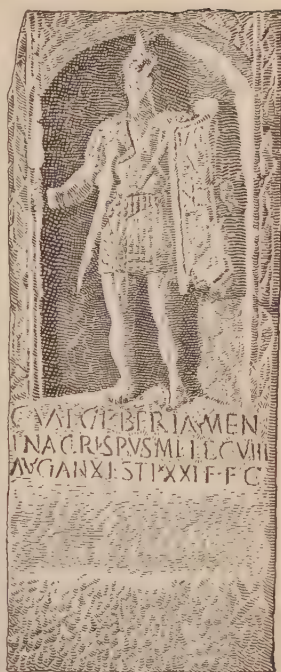 C·VAL·C·F·BERTA·MEN
INA CRISPVS MIL LEG VIII
AVG AN XL STIP XXI F·F C